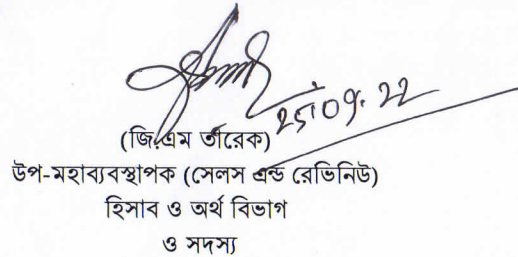 25.09.22
(জি.এম তারেক)
উপ-মহাব্যবস্থাপক (সেলস এন্ড রেভিনিউ)
হিসাব ও অর্থ বিভাগ
ও সদস্য